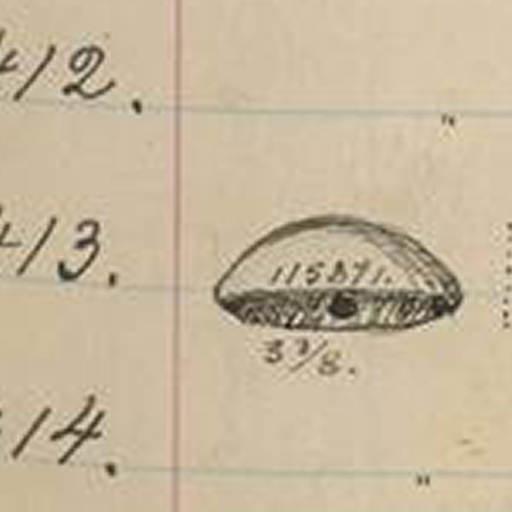 412. "
413.
115871.
3 3/8.
14. "